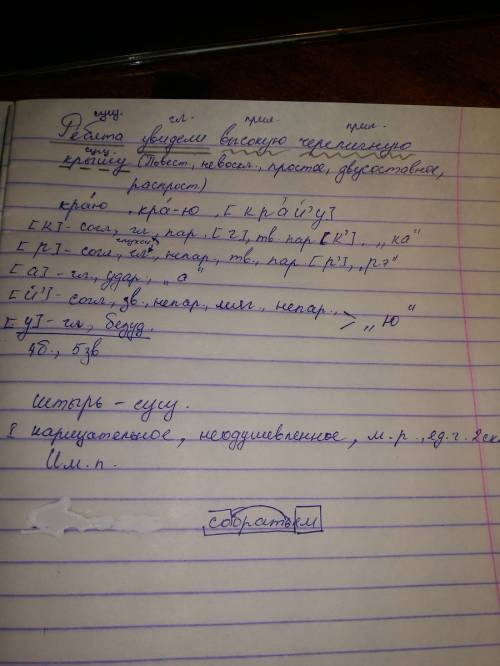 сущ. гл. прил. прил.
Ребята увидели высокую черепичную
сущ.
крышу (Повест., невоскл., простое, двусоставное,
распрост)
кра́ю, кра́-ю, [кра́й'у]
[к]-согл., гл., пар. [г], тв. пар. [к'], „ка"
глухой
[р]-согл., гл., непар., тв., пар. [р'], „рэ"
[а]-гл., удар., „а"
[й']-согл., зв., непар., мягк., непар., > „ю"
[у]-гл., безуд.
4б., 5зв
штырь - сущ.
нарицательное, неодушевленное, м.р., ед.г. 2скл
Им.п.
собратьем